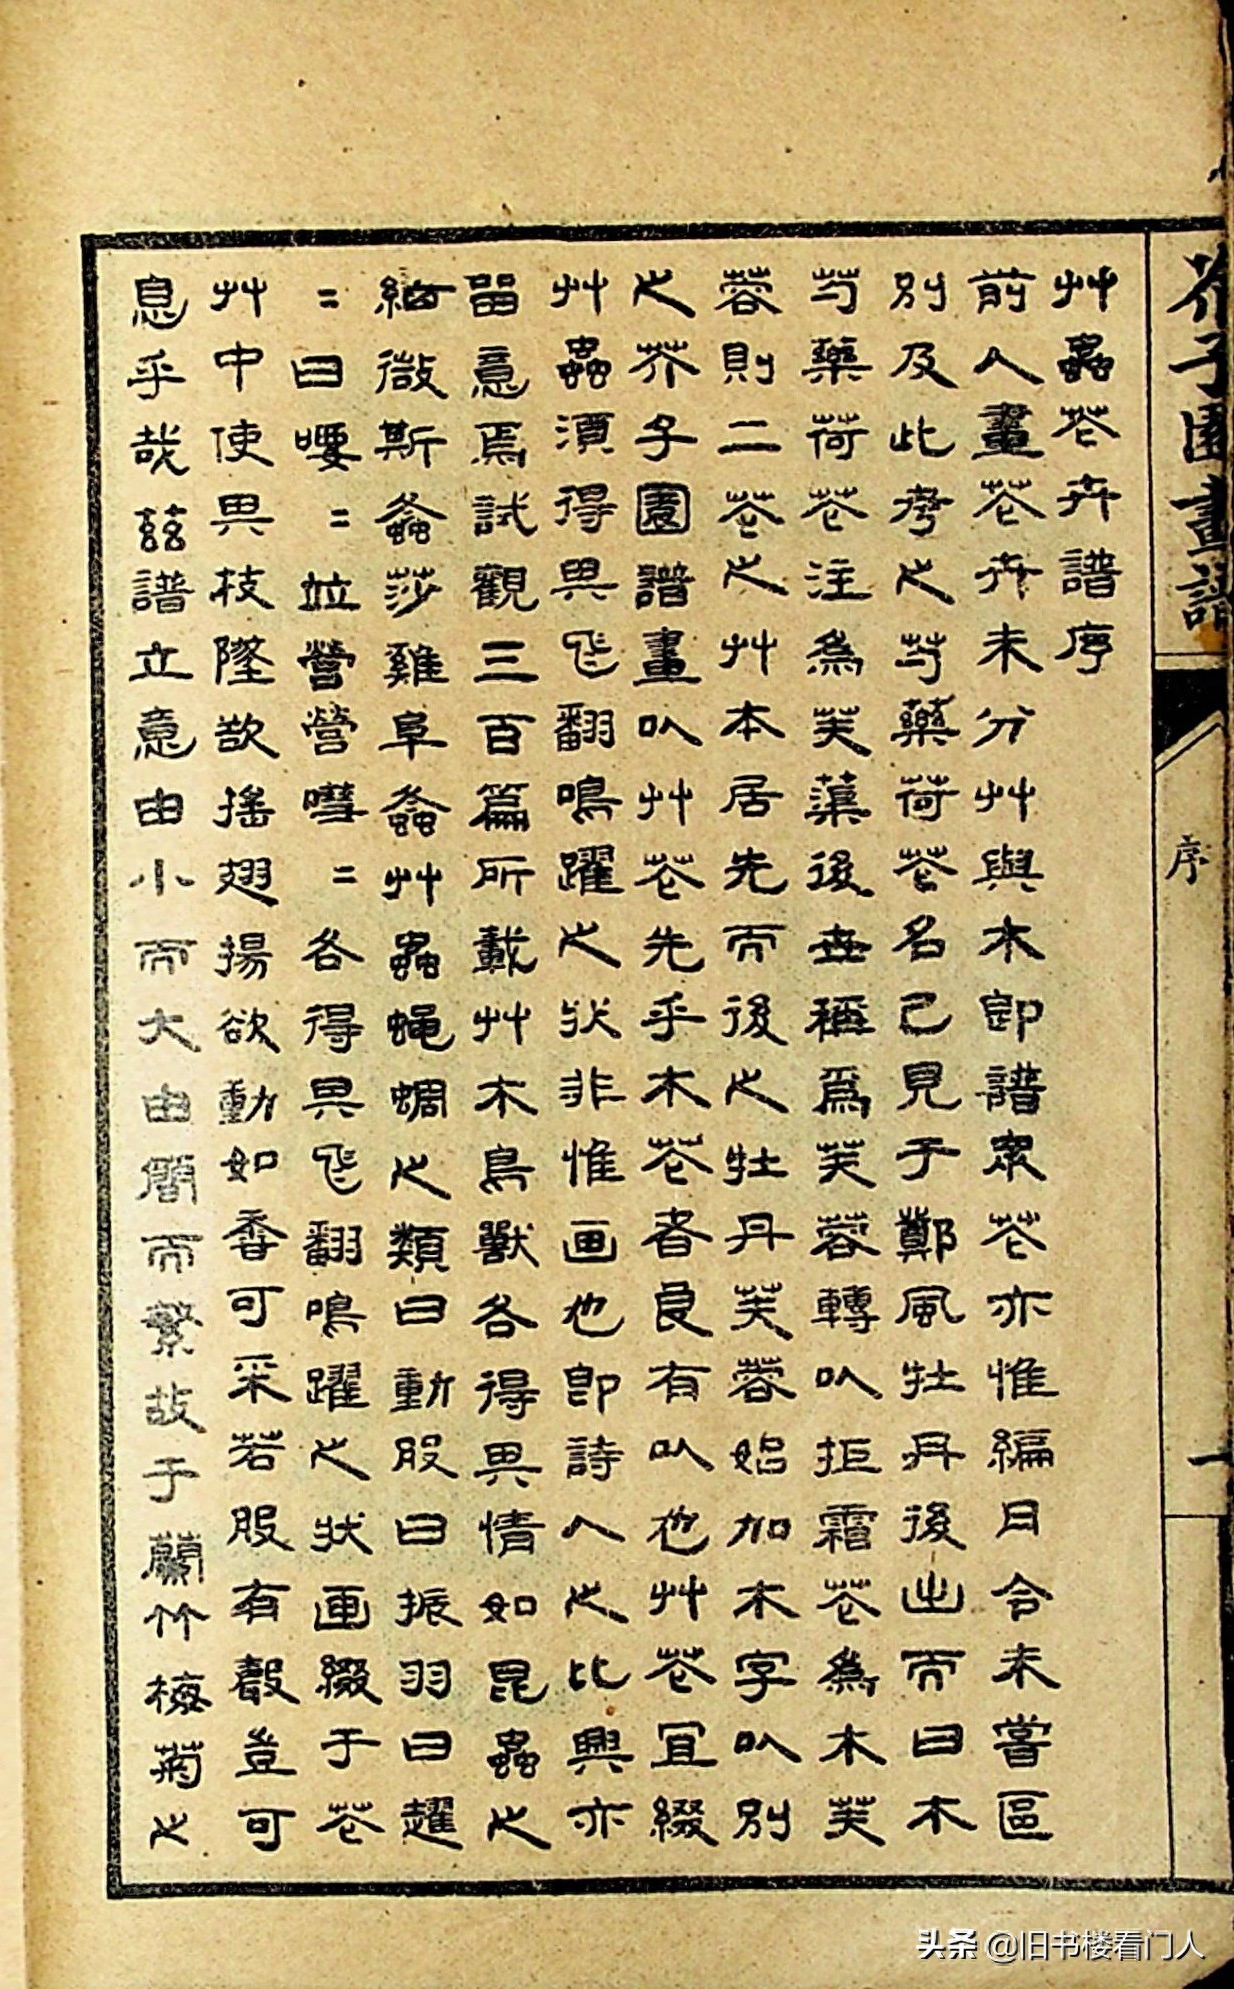 芥子園畫譜
序
一
艸蟲花卉譜序
前人畫花卉未分艸與木即譜衆花亦惟編月令未嘗區
別及此考之芍藥荷花名已見于鄭風牡丹後出而曰木
芍藥荷花注為芙蕖後世稱為芙蓉轉以拒霜花為木芙
蓉則二花之艸本居先而後之牡丹芙蓉始加木字以別
之芥子園譜畫以艸花先乎木花者良有以也艸花宜綴
艸蟲須得其飛翻鳴躍之狀非惟画也即詩人之比興亦
畱意焉試觀三百篇所載艸木鳥獸各得其情如昆蟲之
細微斯螽莎雞阜螽艸蟲蠅蜩之類曰動股曰振羽曰趯
〻曰喓〻竝營營嘒〻各得其飛翻鳴躍之狀画綴于花
艸中使其枝墜欲搖翅揚欲動如香可采若股有聲豈可
息乎哉茲譜立意由小而大由簡而繁故于蘭竹梅菊之
头条 @旧书楼看门人